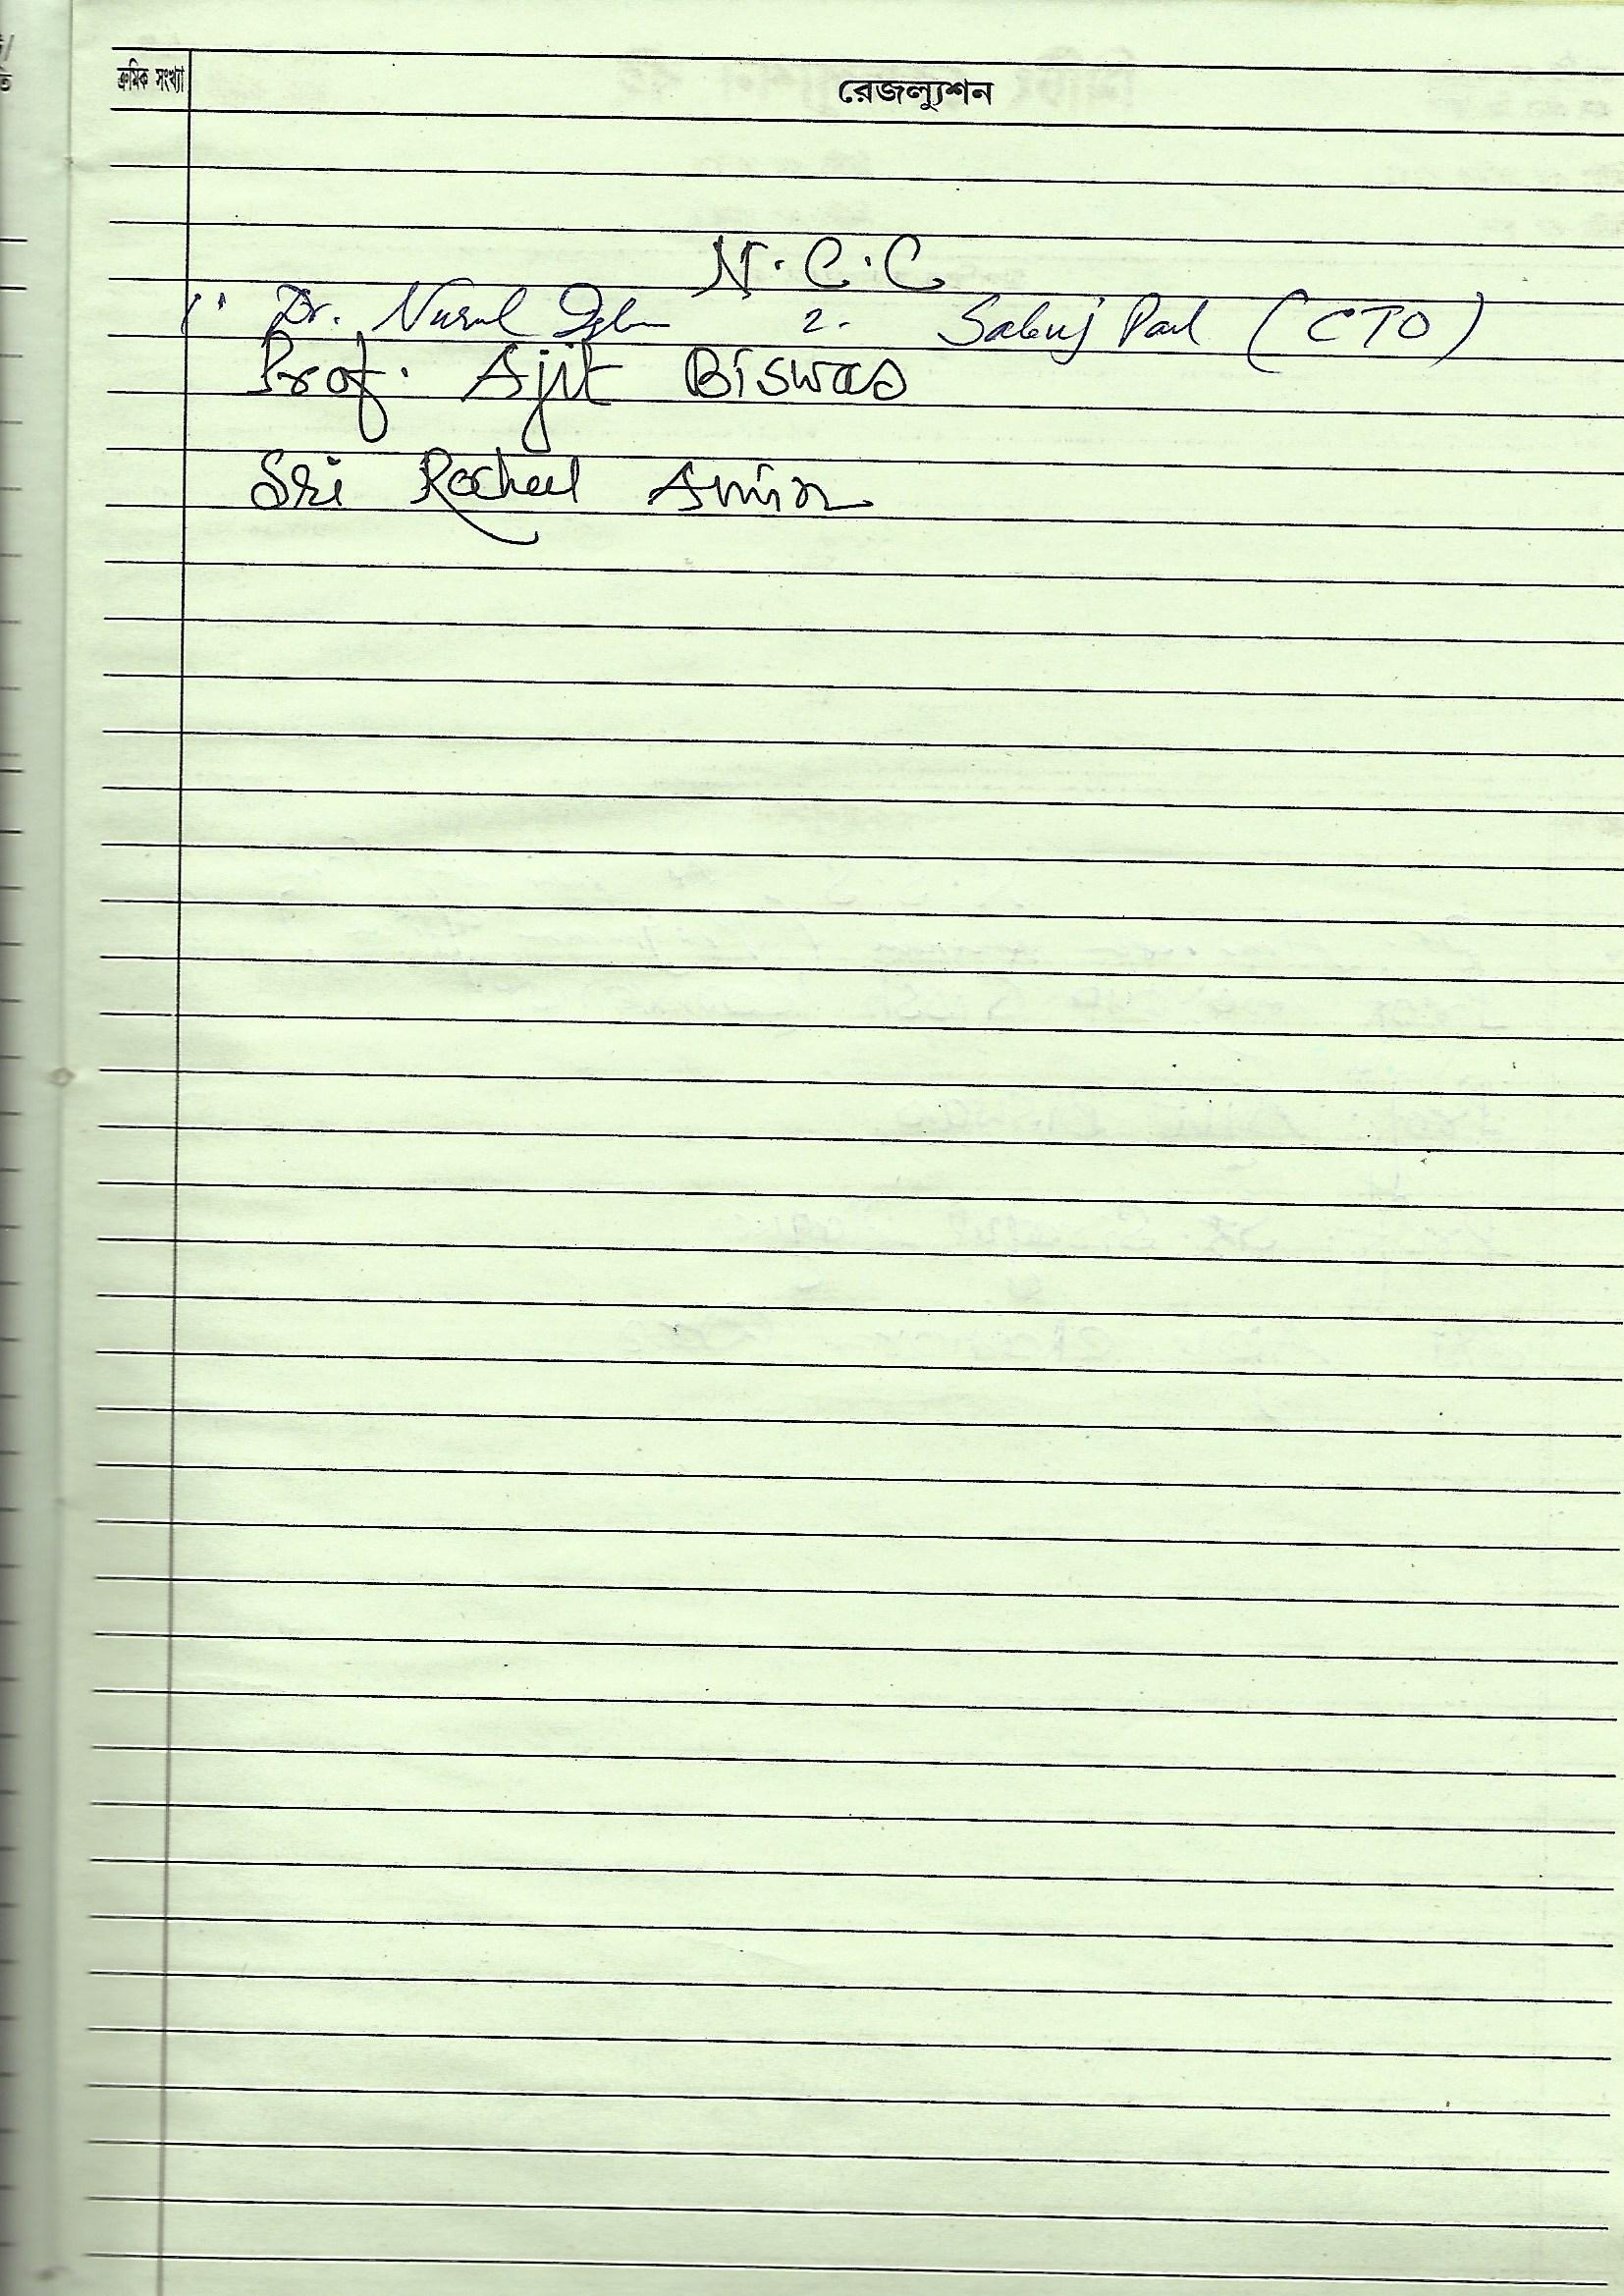 ক্রমিক সংখ্যা
রেজল্যুশন
N.C.C
1. Dr. Nurul 2. Sabuj Paul (CTO)
Prof. Ajit Biswas
Sri Amin